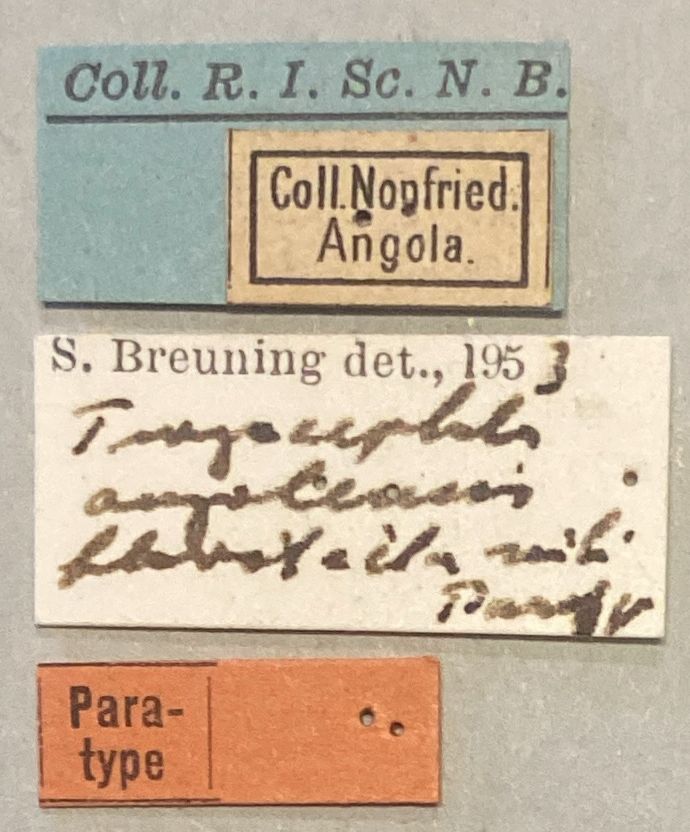 Coll. R. I. Sc. N. B.
Coll. Nopfried.
Angola.
S. Breuning det., 1953
Tragocephala
angolensis
mihi
Para-
type